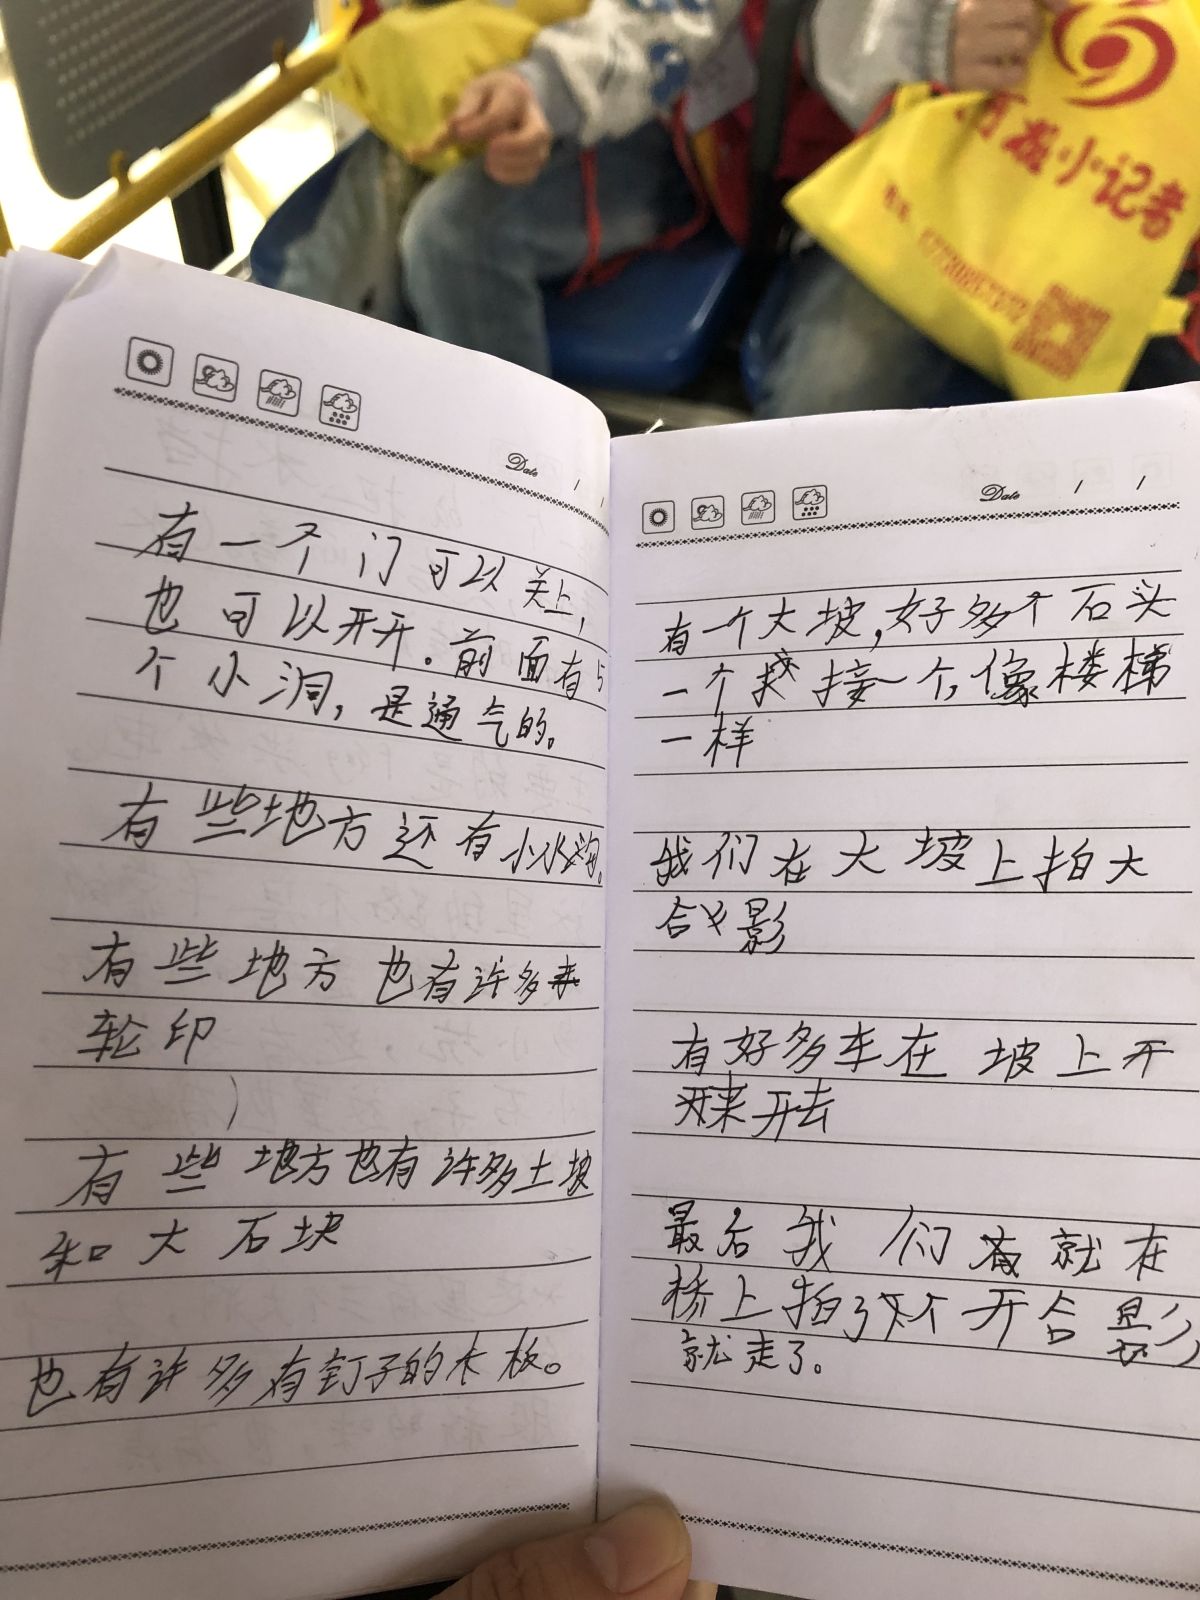 小记者
Date / /
有一个门可以关上,
也可以开开。前面有5
个小洞,是通气的。
有些地方还有小水沟。
有些地方也有许多
轮印
有些地方也有许多土坡
和大石块
也有许多有钉子的木板。
Date / /
有一个大坡,好多个石头
一个接一个,像楼梯
一样
我们在大坡上拍大
合影
有好多车在坡上开
来开去
最后我们就在
桥上拍了个开合影
就走了。